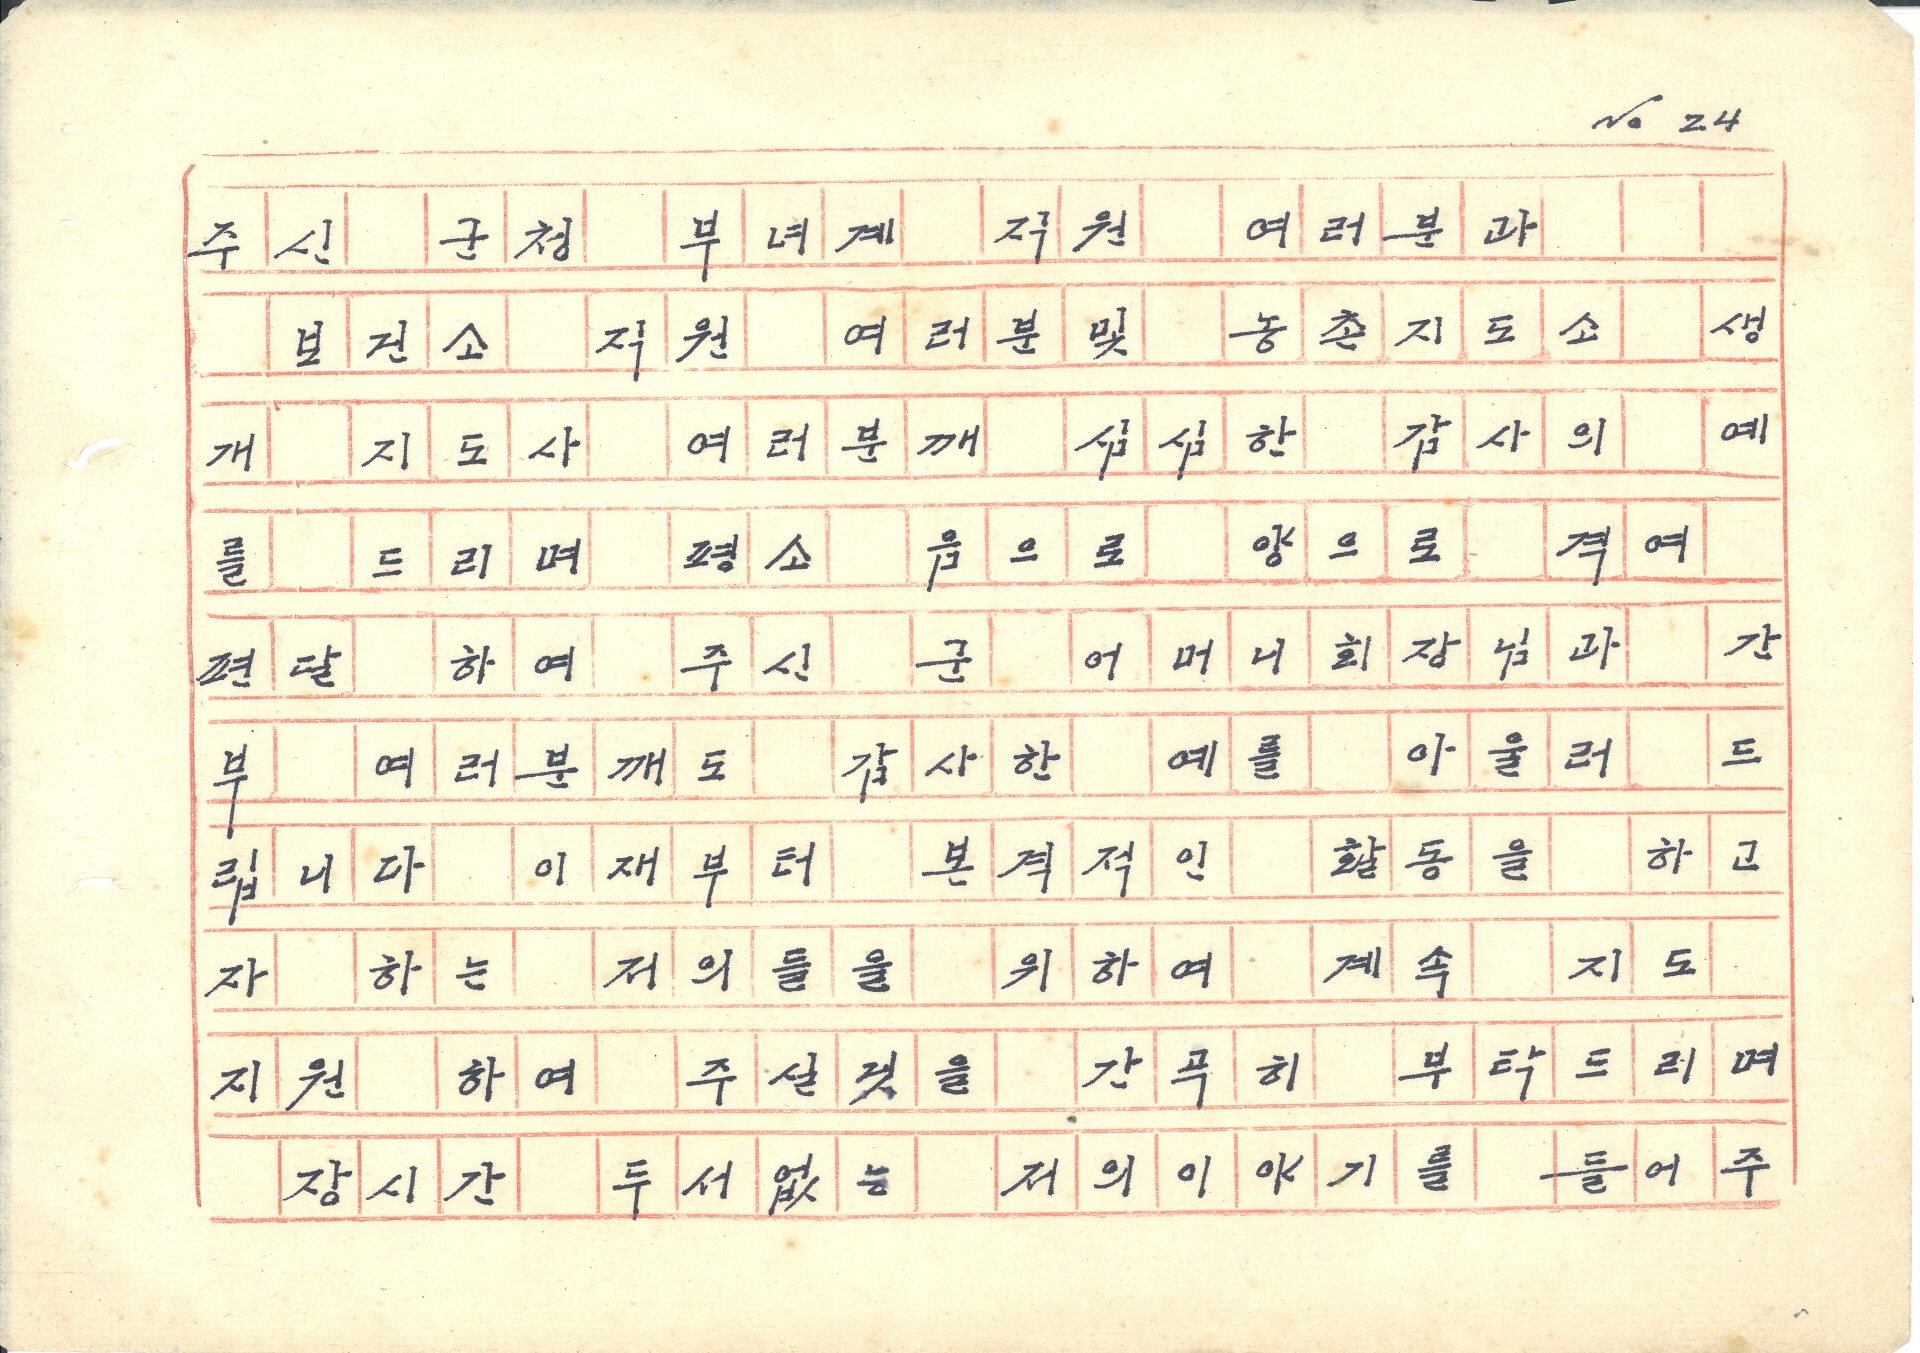 No 24
주신 군청 부녀계 직원 여러분과
보건소 직원 여러분및 농촌지도소 생
개 지도사 여러분깨 심심한 감사의 예
를 드리며 평소 음으로 양으로 격여
편달 하여 주신 군 어머니회장님과 간
부 여러분깨도 감사한 예를 아울러 드
립니다 이재부터 본격적인 활동을 하고
자 하는 저의들을 위하여 계속 지도
지원 하여 주실것을 간곡히 부탁드리며
장시간 두서없는 저의이야기를 들어주